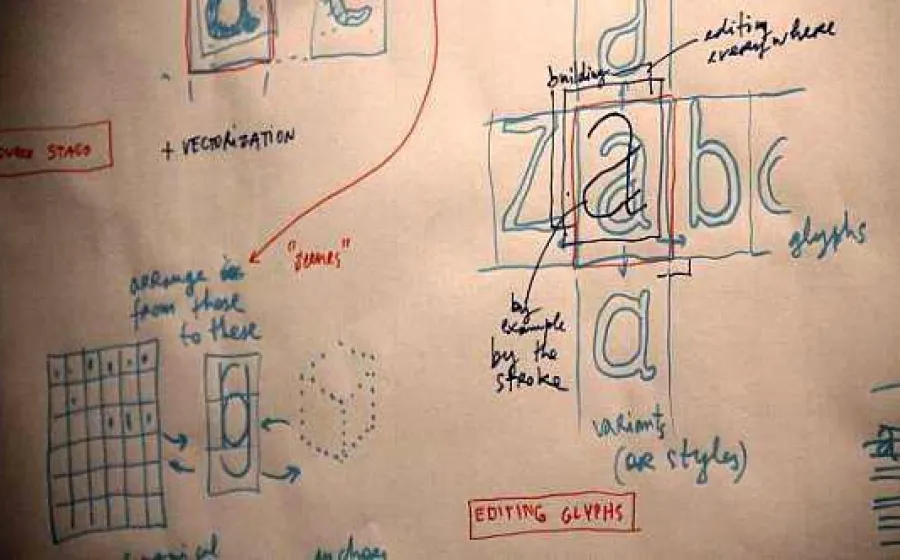 a
+ VECTORIZATION
STAGE
"
arrange
from these
to these
g
a
building
editing
everywhere
z a b c
glyphs
by
example
by the
stroke
a
variants
(or styles)
EDITING GLYPHS